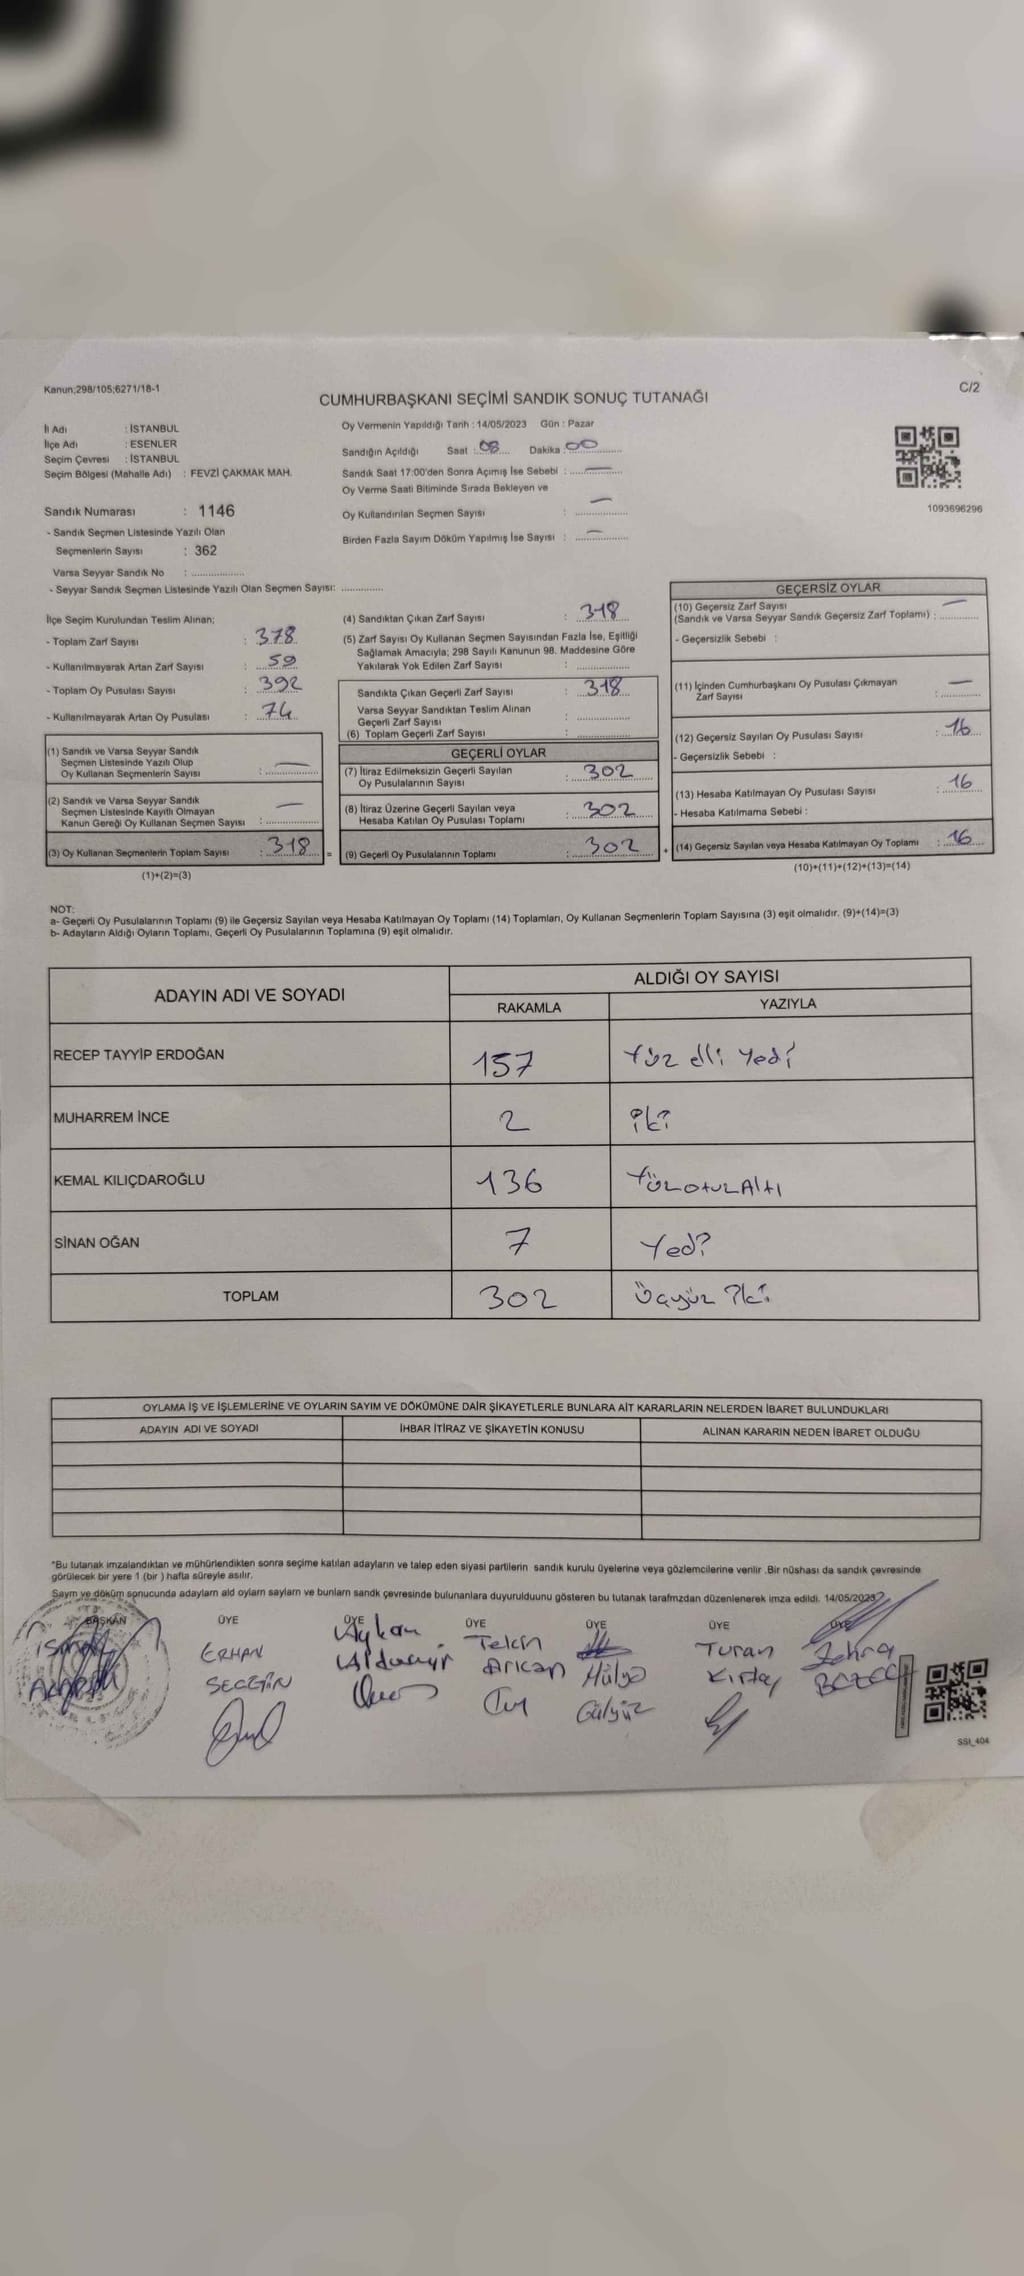 Kanun;298/105;6271/18-1
C/2
CUMHURBAŞKANI SEÇİMİ SANDIK SONUÇ TUTANAĞI
İl Adı : İSTANBUL
İlçe Adı : ESENLER
Seçim Çevresi : İSTANBUL
Seçim Bölgesi (Mahalle Adı) : FEVZİ ÇAKMAK MAH.
Oy Vermenin Yapıldığı Tarih : 14/05/2023 Gün : Pazar
Sandığın Açıldığı Saat : 08 Dakika : 00
Sandık Saat 17:00'den Sonra Açımış İse Sebebi : —
Oy Verme Saati Bitiminde Sırada Bekleyen ve
Oy Kullandırılan Seçmen Sayısı : —
Birden Fazla Sayım Döküm Yapılmış İse Sayısı : —
1093696296
Sandık Numarası : 1146
- Sandık Seçmen Listesinde Yazılı Olan
Seçmenlerin Sayısı : 362
Varsa Seyyar Sandık No : ..................
- Seyyar Sandık Seçmen Listesinde Yazılı Olan Seçmen Sayısı: .............
İlçe Seçim Kurulundan Teslim Alınan;
- Toplam Zarf Sayısı : 378
- Kullanılmayarak Artan Zarf Sayısı : 59
- Toplam Oy Pusulası Sayısı : 392
- Kullanılmayarak Artan Oy Pusulası : 74
(1) Sandık ve Varsa Seyyar Sandık
Seçmen Listesinde Yazılı Olup
Oy Kullanan Seçmenlerin Sayısı : —
(2) Sandık ve Varsa Seyyar Sandık
Seçmen Listesinde Kayıtlı Olmayan
Kanun Gereği Oy Kullanan Seçmen Sayısı : —
(3) Oy Kullanan Seçmenlerin Toplam Sayısı : 318 =
(1)+(2)=(3)
(4) Sandıktan Çıkan Zarf Sayısı : 318
(5) Zarf Sayısı Oy Kullanan Seçmen Sayısından Fazla İse, Eşitliği
Sağlamak Amacıyla; 298 Sayılı Kanunun 98. Maddesine Göre
Yakılarak Yok Edilen Zarf Sayısı : .............
Sandıkta Çıkan Geçerli Zarf Sayısı : 318
Varsa Seyyar Sandıktan Teslim Alınan
Geçerli Zarf Sayısı : .............
(6) Toplam Geçerli Zarf Sayısı : .............
GEÇERLİ OYLAR
(7) İtiraz Edilmeksizin Geçerli Sayılan
Oy Pusulalarının Sayısı : 302
(8) İtiraz Üzerine Geçerli Sayılan veya
Hesaba Katılan Oy Pusulası Toplamı : 302
(9) Geçerli Oy Pusulalarının Toplamı : 302 +
GEÇERSİZ OYLAR
(10) Geçersiz Zarf Sayısı
(Sandık ve Varsa Seyyar Sandık Geçersiz Zarf Toplamı) : —
- Geçersizlik Sebebi :
(11) İçinden Cumhurbaşkanı Oy Pusulası Çıkmayan
Zarf Sayısı : —
(12) Geçersiz Sayılan Oy Pusulası Sayısı : 16
- Geçersizlik Sebebi :
(13) Hesaba Katılmayan Oy Pusulası Sayısı : 16
- Hesaba Katılmama Sebebi :
(14) Geçersiz Sayılan veya Hesaba Katılmayan Oy Toplamı : 16
(10)+(11)+(12)+(13)=(14)
NOT:
a- Geçerli Oy Pusulalarının Toplamı (9) ile Geçersiz Sayılan veya Hesaba Katılmayan Oy Toplamı (14) Toplamları, Oy Kullanan Seçmenlerin Toplam Sayısına (3) eşit olmalıdır. (9)+(14)=(3)
b- Adayların Aldığı Oyların Toplamı, Geçerli Oy Pusulalarının Toplamına (9) eşit olmalıdır.
ADAYIN ADI VE SOYADI
ALDIĞI OY SAYISI
RAKAMLA YAZIYLA
RECEP TAYYİP ERDOĞAN 157 Yüz elli Yedi
MUHARREM İNCE 2 iki
KEMAL KILIÇDAROĞLU 136 YüzotuzAltı
SİNAN OĞAN 7 Yedi
TOPLAM 302 Üçyüz iki
OYLAMA İŞ VE İŞLEMLERİNE VE OYLARIN SAYIM VE DÖKÜMÜNE DAİR ŞİKAYETLERLE BUNLARA AİT KARARLARIN NELERDEN İBARET BULUNDUKLARI
ADAYIN ADI VE SOYADI İHBAR İTİRAZ VE ŞİKAYETİN KONUSU ALINAN KARARIN NEDEN İBARET OLDUĞU
*Bu tutanak imzalandıktan ve mühürlendikten sonra seçime katılan adayların ve talep eden siyasi partilerin sandık kurulu üyelerine veya gözlemcilerine verilir .Bir nüshası da sandık çevresinde
görülecek bir yere 1 (bir ) hafta süreyle asılır.
Sayım ve döküm sonucunda adayların ald oyların sayların ve bunların sandk çevresinde bulunanlara duyurulduunu gösteren bu tutanak tarafmzdan düzenlenerek imza edildi. 14/05/2023
BAŞKAN ÜYE ÜYE ÜYE ÜYE ÜYE ÜYE
ERHAN Aykan Tekin Hülya Turan Zehra
Arıkan Gülyüz
SSI_404